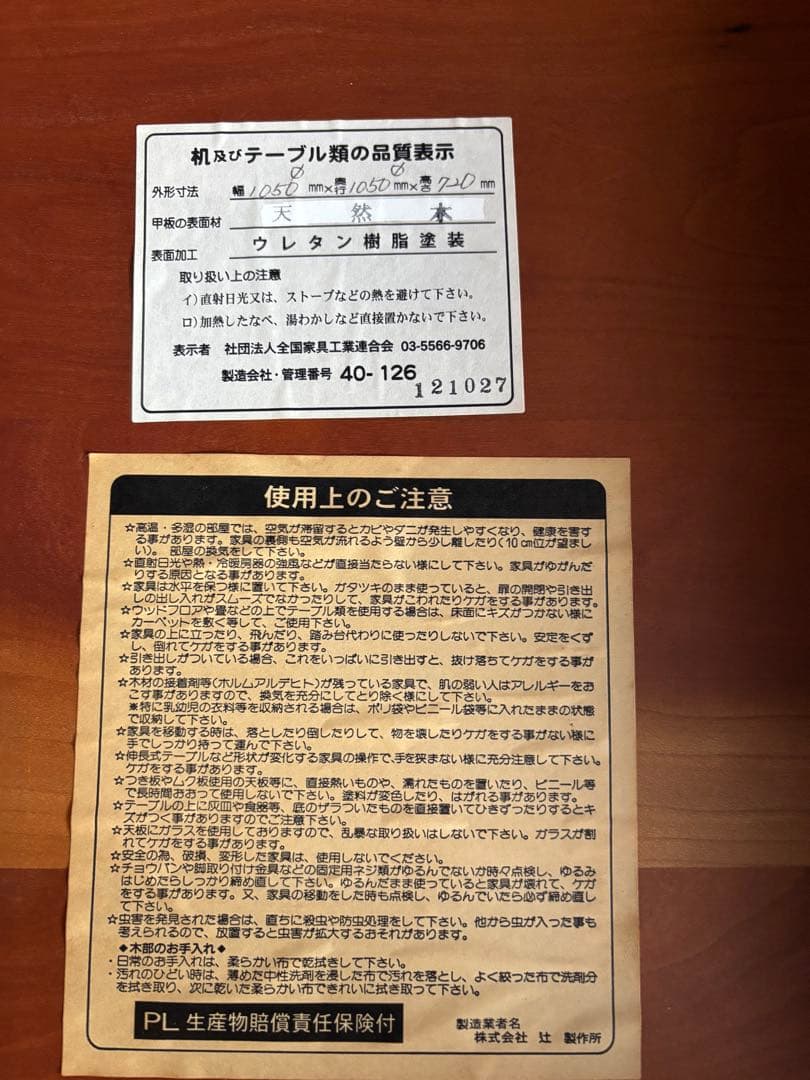 机及びテーブル類の品質表示
外形寸法 幅1050φmm×奥行1050φmm×高さ720mm
甲板の表面材 天然木
表面加工 ウレタン樹脂塗装
取り扱い上の注意
イ)直射日光又は、ストーブなどの熱を避けて下さい。
ロ)加熱したなべ、湯わかしなど直接置かないで下さい。
表示者 社団法人全国家具工業連合会 03-5566-9706
製造会社・管理番号 40-126
121027
使用上のご注意
☆高温・多湿の部屋では、空気が滞留するとカビやダニが発生しやすくなり、健康を害す
る事があります。家具の裏側も空気が流れるよう壁から少し離したり(10㎝位が望まし
い)。部屋の換気をして下さい。
☆直射日光や熱・冷暖房器の強風などが直接当たらない様にして下さい。家具がゆがんだ
りする原因となる事があります。
☆家具は水平を保つ様に置いて下さい。ガタツキのまま使っていると、扉の開閉や引き出
しの出し入れがスムーズでなかったりして、家具がこわれたりケガをする事があります。
☆ウッドフロアや畳などの上でテーブル類を使用する場合は、床面にキズがつかない様に
カーペットを敷く等して、ご使用下さい。
☆家具の上に立ったり、飛んだり、踏み台代わりに使ったりしないで下さい。安定をくず
し、倒れてケガをする事があります。
☆引き出しがついている場合、これをいっぱいに引き出すと、抜け落ちてケガをする事が
あります。
☆木材の接着剤等(ホルムアルデヒト)が残っている家具で、肌の弱い人はアレルギーをお
こす事がありますので、換気を充分にしてとり除く様にして下さい。
※特に乳幼児の衣料等を収納される場合は、ポリ袋やビニール袋等に入れたままの状態
で収納して下さい。
☆家具を移動する時は、落としたり倒したりして、物を壊したりケガをする事がない様に
手でしっかり持って運んで下さい。
☆伸長式テーブルなど形状が変化する家具の操作で、手を挟まない様に充分注意して下さい。
ケガをする事があります。
☆つき板やムク板使用の天板等に、直接熱いものや、濡れたものを置いたり、ビニール等
で長時間おおって使用しないで下さい。塗料が変色したり、はがれる事があります。
☆テーブルの上に灰皿や食器等、底のザラついたものを直接置いてひきずったりするとキ
ズがつく事がありますのでご注意下さい。
☆天板にガラスを使用しておりますので、乱暴な取り扱いはしないで下さい。ガラスが割
れてケガをする事があります。
☆安全の為、破損、変形した家具は、使用しないでください。
☆チョウバンや脚取り付け金具などの固定用ネジ類がゆるんでないか時々点検し、ゆるみ
はじめたらしっかり締め直して下さい。ゆるんだまま使っていると家具が壊れて、ケガ
をする事があります。又、家具の移動をした時も点検し、ゆるんでいたら必ず締め直し
て下さい。
☆虫害を発見された場合は、直ちに殺虫や防虫処理をして下さい。他から虫が入った事も
考えられるので、放置すると虫害が拡大するおそれがあります。
◆木部のお手入れ◆
・日常のお手入れは、柔らかい布で乾拭きして下さい。
・汚れのひどい時は、薄めた中性洗剤を浸した布で汚れを落とし、よく絞った布で洗剤分
を拭き取り、次に乾いた柔らかい布できれいに拭き取って下さい。
PL生産物賠償責任保険付
製造業者名
株式会社 辻 製作所